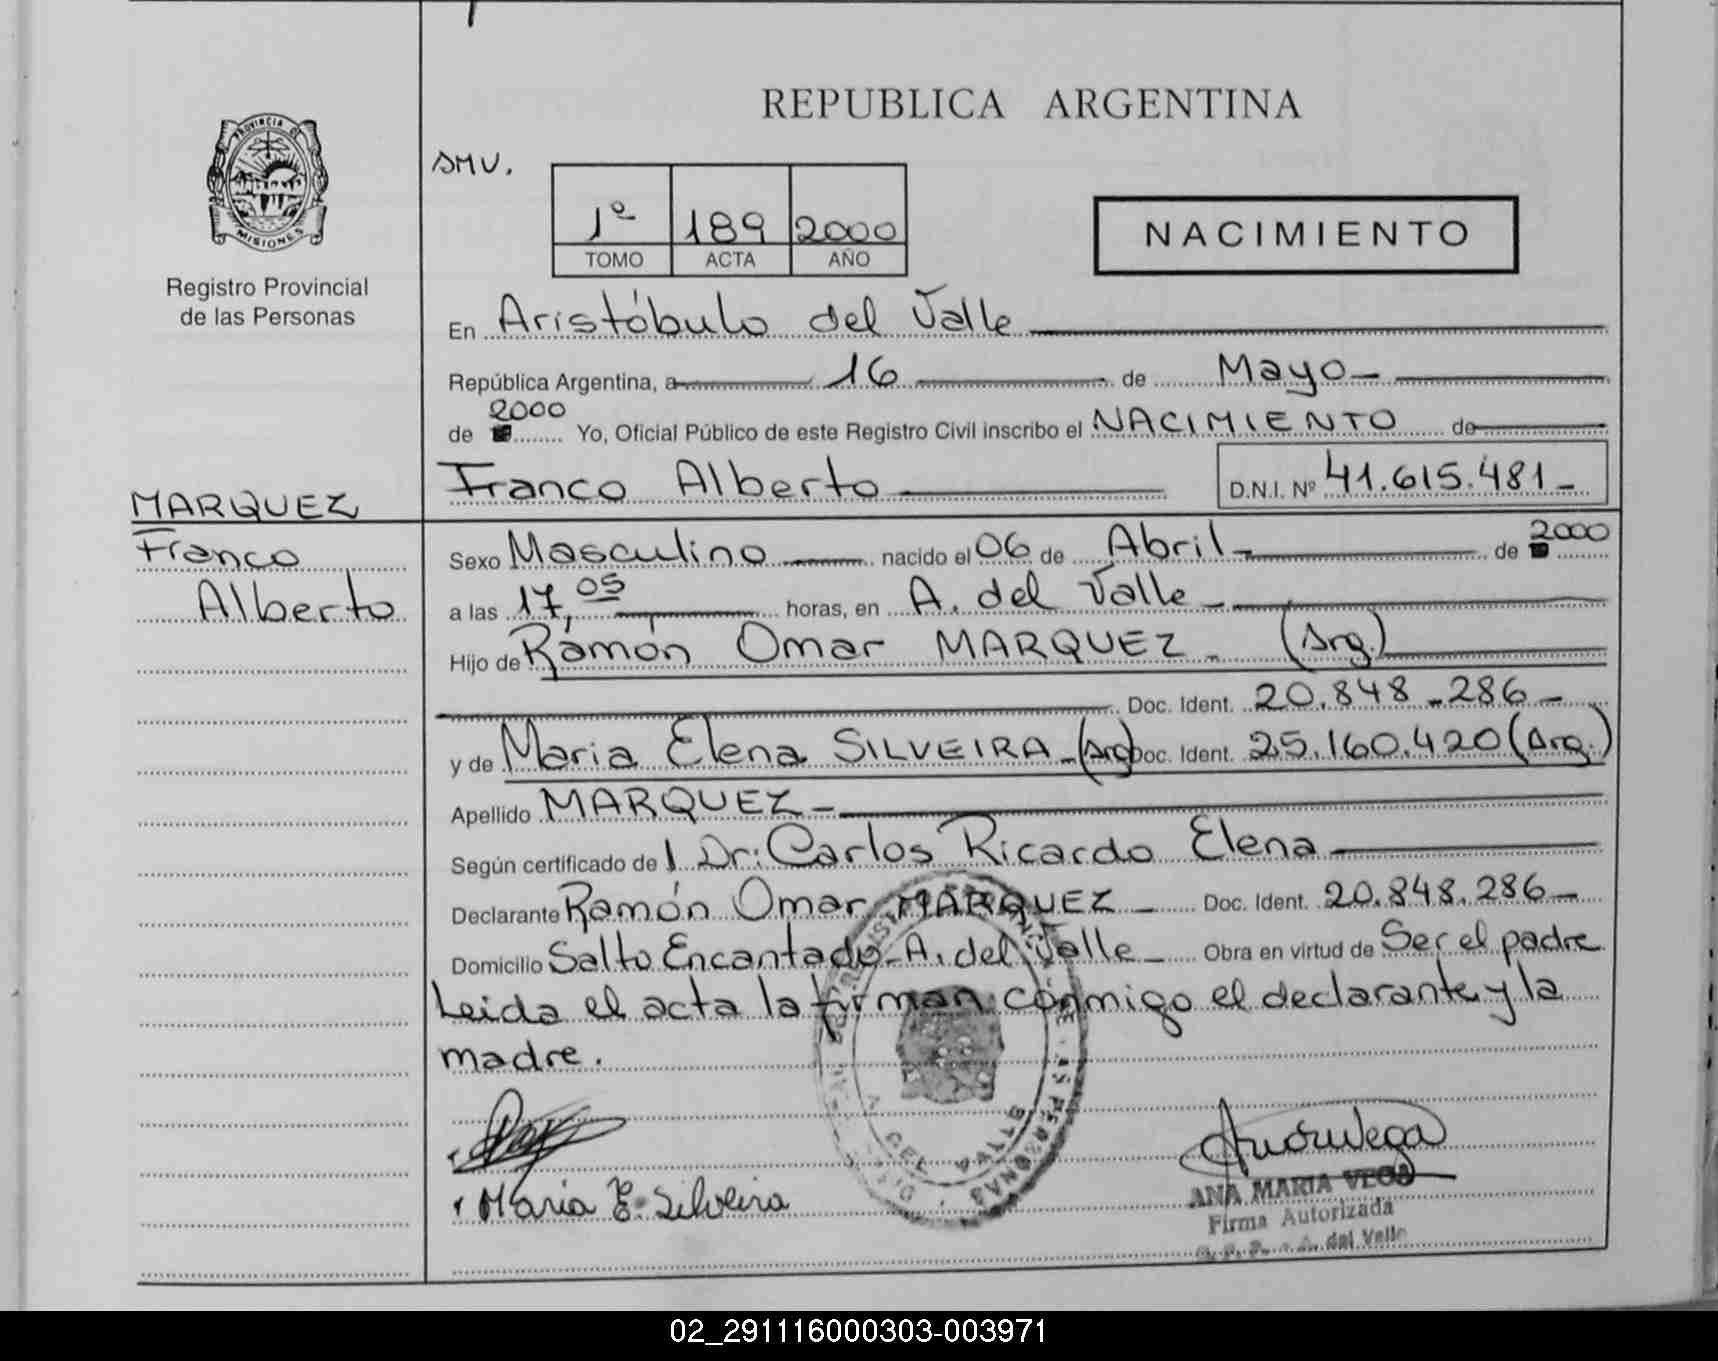 REPUBLICA ARGENTINA
PROVINCIA DE
MISIONES
Registro Provincial
de las Personas
SMV.
1º 189 2000
TOMO ACTA AÑO
NACIMIENTO
En Aristóbulo del Valle
República Argentina, a 16 de Mayo
2000
de Yo, Oficial Público de este Registro Civil inscribo el NACIMIENTO de
Franco Alberto D.N.I. Nº 41.615.481
MARQUEZ
Franco
Alberto
Sexo Masculino nacido el 06 de Abril de 2000
a las 17,05 horas, en A. del Valle
Hijo de Ramón Omar MARQUEZ (Arg.)
Doc. Ident. 20.848.286
y de Maria Elena SILVEIRA (Arg) Doc. Ident. 25.160.420 (Arg.)
Apellido MARQUEZ
Según certificado de l Dr: Carlos Ricardo Elena
Declarante Ramón Omar MARQUEZ Doc. Ident. 20.848.286
Domicilio Salto Encantado - A. del Valle Obra en virtud de Ser el padre
Leida el acta la firman conmigo el declarante y la
madre.
Maria E. Silveira
ANA MARIA VEGA
Firma Autorizada
del Valle
02_291116000303-003971